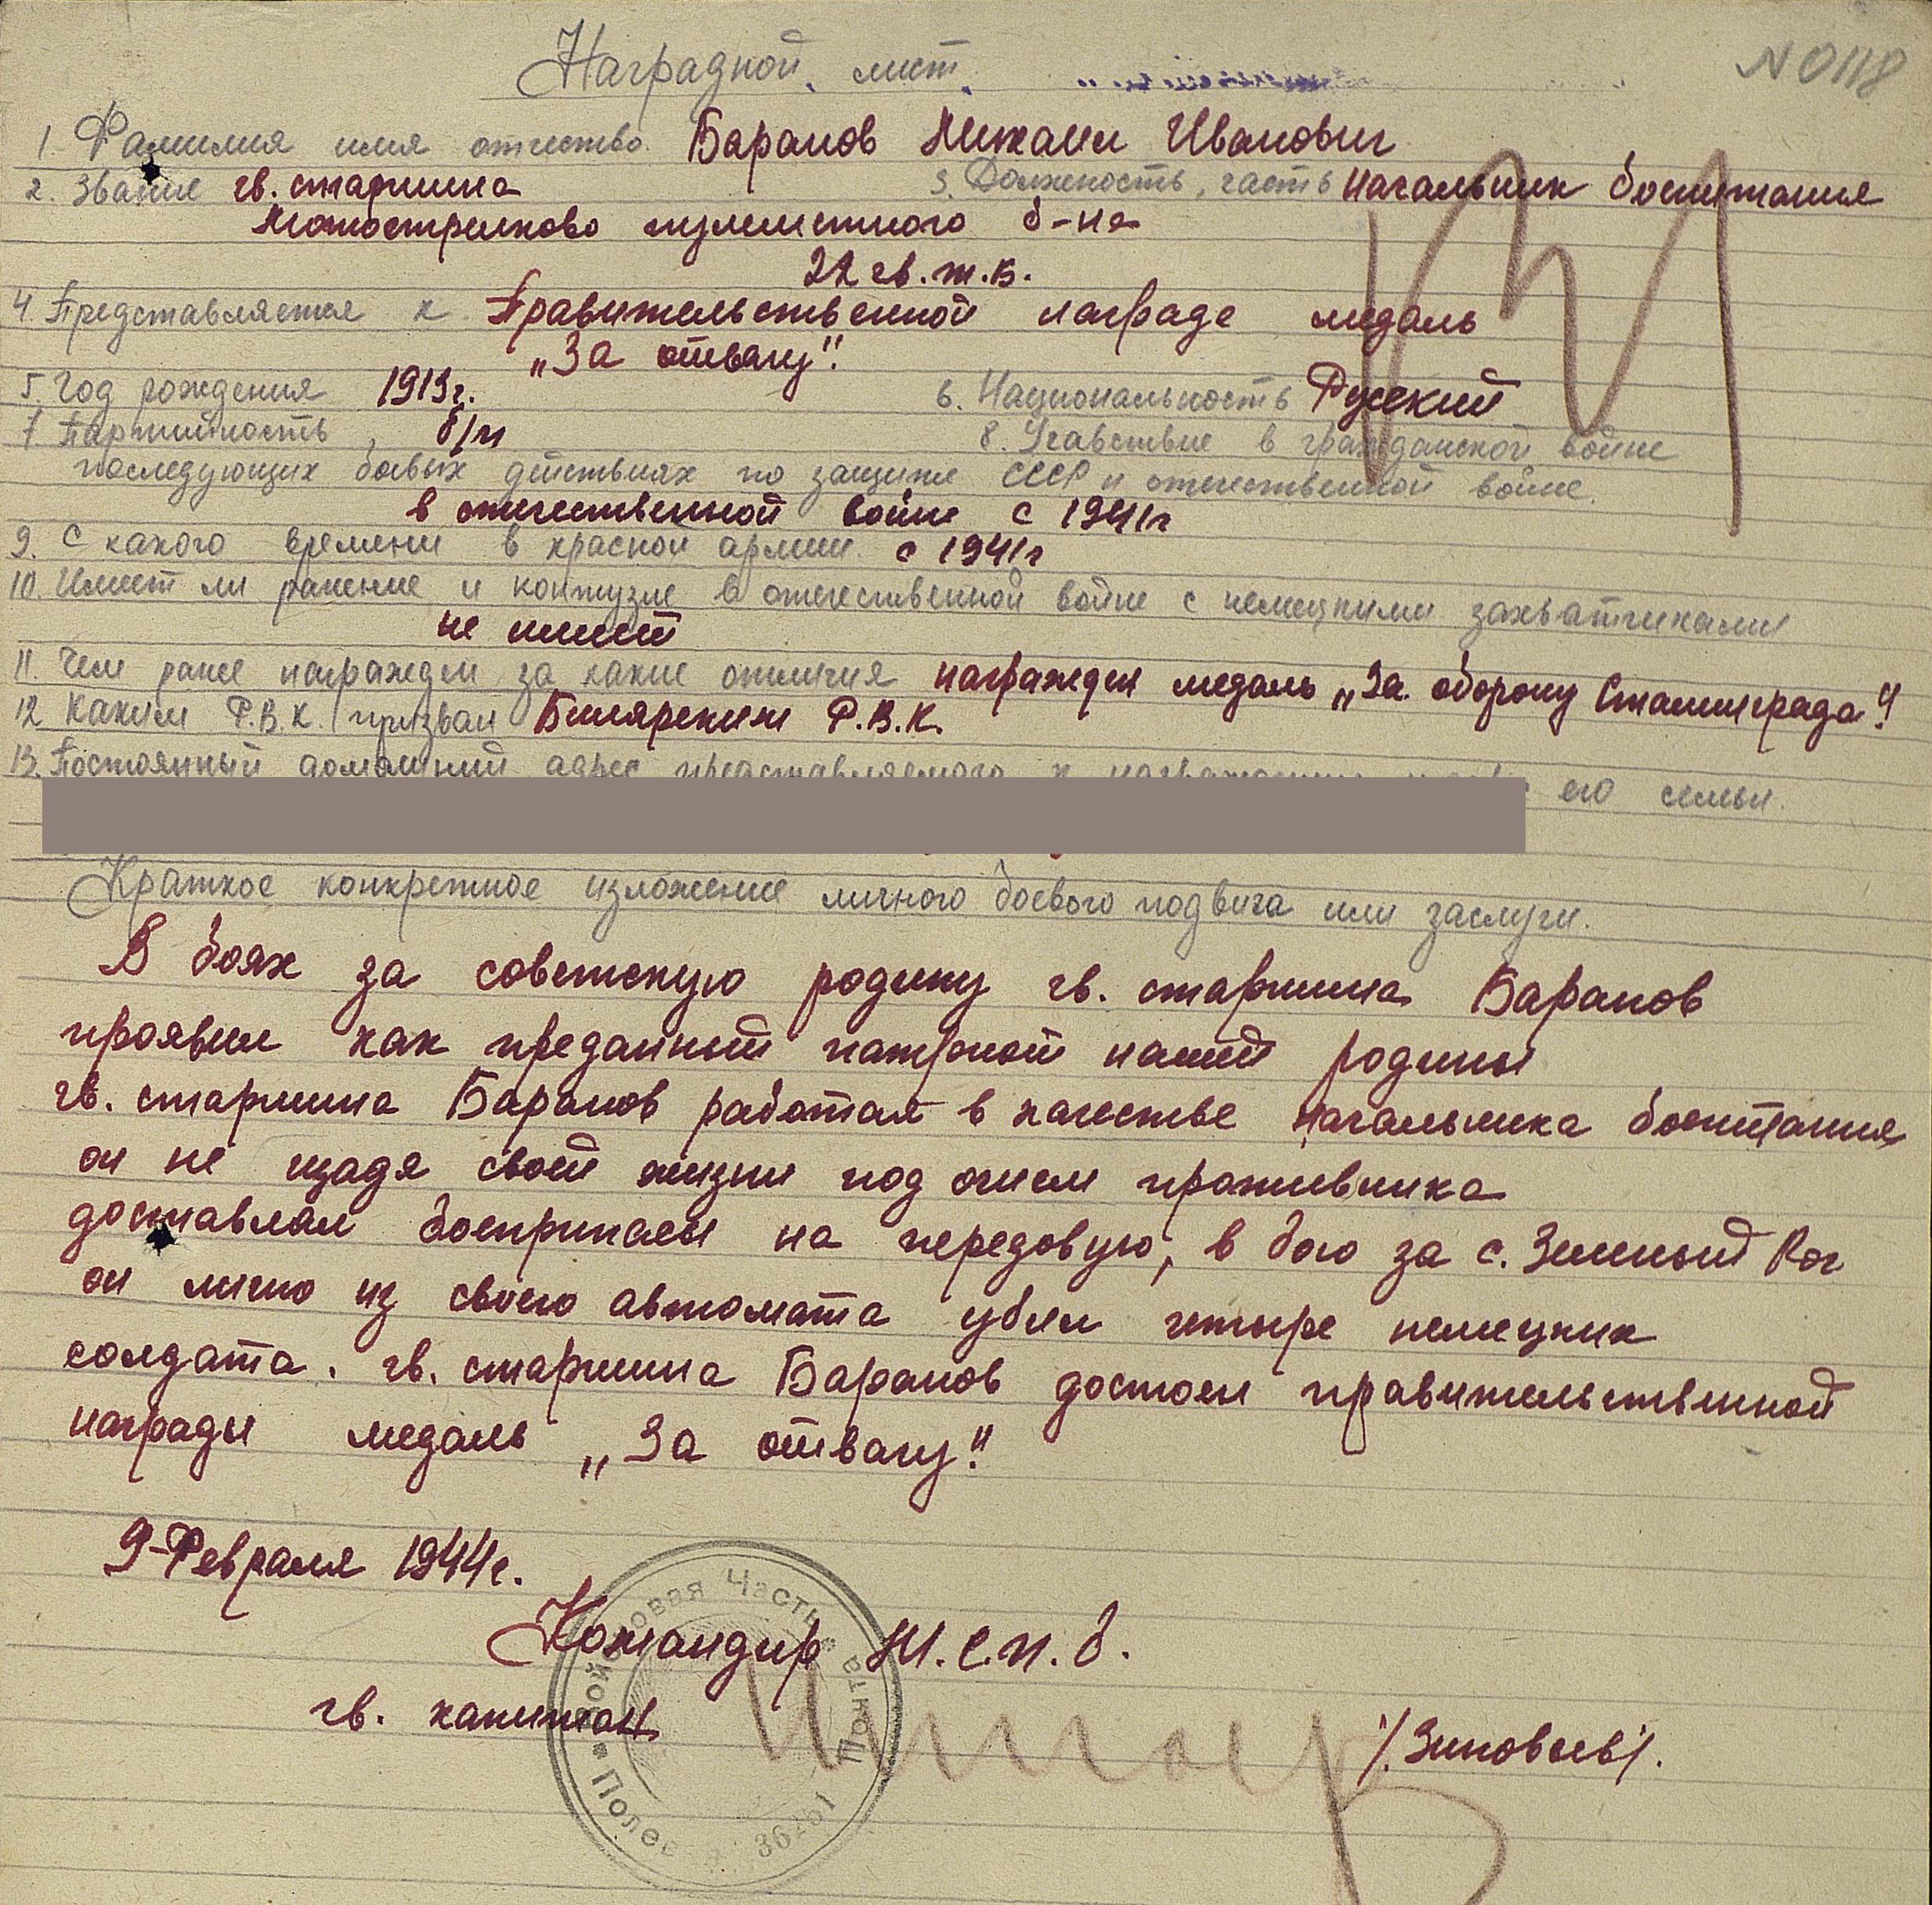 Наградной лист
N 0118
1. Фамилия имя отчество Баранов Михаил Иванович
2. Звание гв. старшина 3. Должность, часть Начальник боепитания
Мотострелково пулеметного б-на
22 гв. т. б.
4. Представляется к Правительственной награде медаль
„За отвагу"
5. Год рождения 1913г. 6. Национальность Русский
7. Партийность б/п 8. Учавствие в гражданской войне
последующих боевых действиях по защите СССР и отечественной войне.
в отечественной войне с 1941г
9. С какого времени в красной армии с 1941г
10. Имеет ли ранение и контузие в отечественной войне с немецкими захватчиками
не имеет
11. Чем ранее награжден за какие отличия награжден медаль „За оборону Сталинграда"
12 Каким Р.В.К. призван Билярским Р.В.К.
13. Постоянный домашний адрес представляемого к его семьи.
Краткое конкретное изложение личного боевого подвига или заслуги.
В боях за советскую родину гв. старшина Баранов
проявил как преданный патриот нашей родины
гв. старшина Баранов работая в качестве начальника боепитания
он не щадя своей жизни под огнем противника
доставлял боеприпасы на передовую, в бою за с. Зеленый Рог
он лично из своего автомата убил четыре немецких
солдата. гв. старшина Баранов достоен правительственной
награды медаль „За отвагу"
9-Февраля 1944г.
Командир М.С.П.б.
гв. капитан /Зиновьев/.
Войсковая Часть Полевая Почта